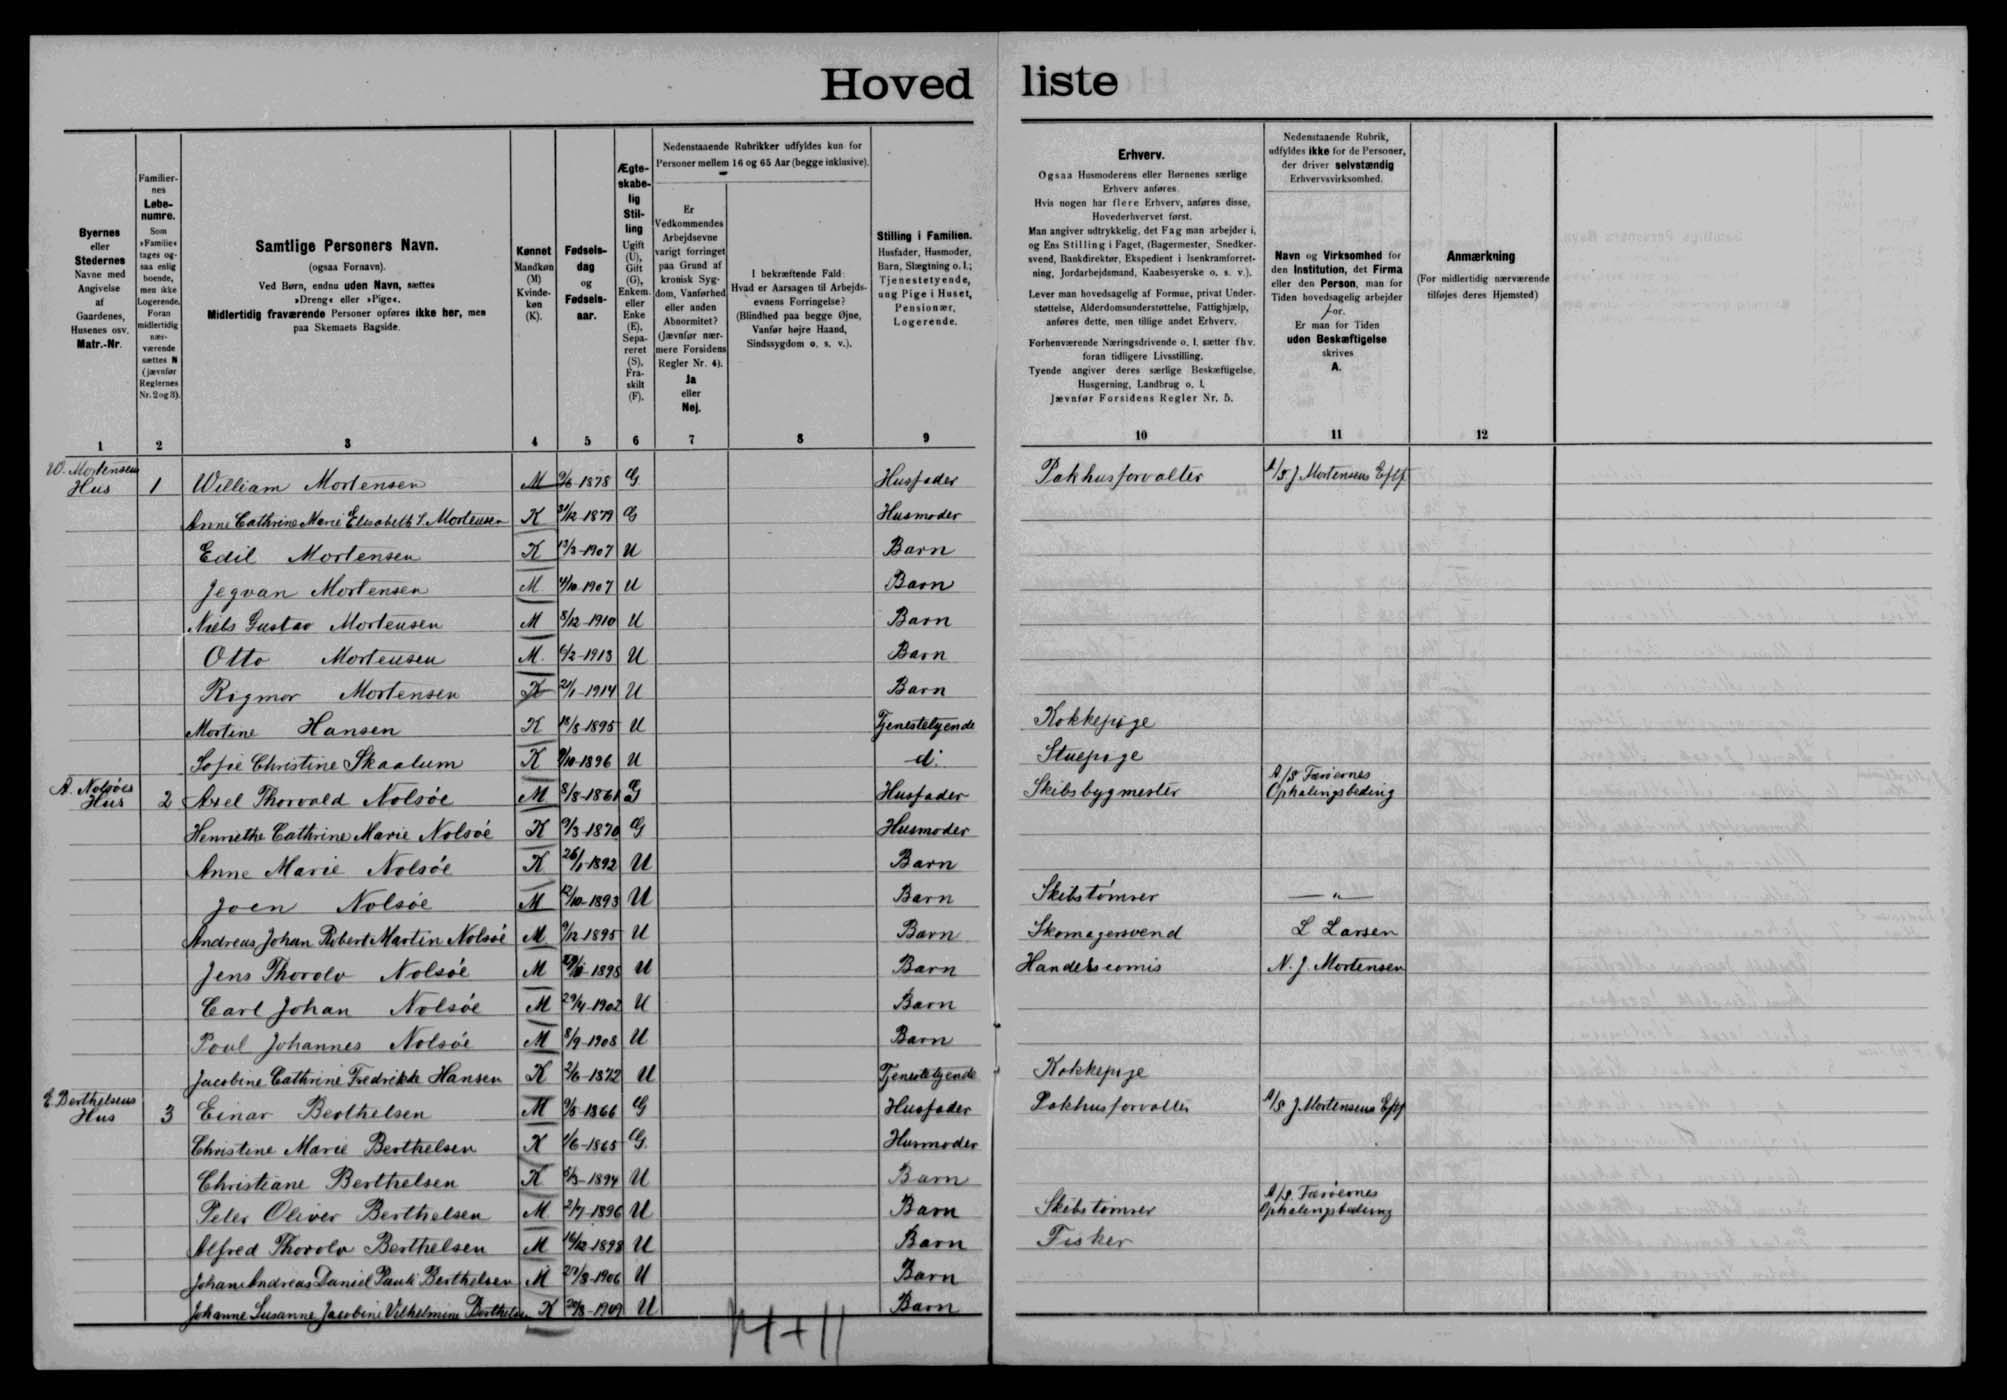 Hovedliste
Byernes
eller
Stedernes
Navne med
Angivelse
af
Gaardenes,
Husenes osv.
Matr.-Nr.
Familier-
nes
Løbe-
numre.
Som
»Familie«
tages og-
saa enlig
boende,
men ikke
Logerende.
Foran
midlertidig
nær-
værende
sættes N
(jævnfør
Reglernes
Nr. 2 og 3).
Samtlige Personers Navn.
(ogsaa Fornavn).
Ved Børn, endnu uden Navn, sættes
»Dreng« eller »Pige«.
Midlertidig fraværende Personer opføres ikke her, men
paa Skemaets Bagside.
Kønnet
Mandkøn
(M)
Kvinde-
køn
(K).
Fødsels-
dag
og
Fødsels-
aar.
Ægte-
skabe-
lig
Stil-
ling
Ugift
(U),
Gift
(G),
Enkem.
eller
Enke
(E),
Sepa-
reret
(S),
Fra-
skilt
(F).
Nedenstaaende Rubrikker udfyldes kun for
Personer mellem 16 og 65 Aar (begge inklusive).
Er
Vedkommendes
Arbejdsevne
varigt forringet
paa Grund af
kronisk Syg-
dom, Vanførhed
eller anden
Abnormitet?
(Jævnfør nær-
mere Forsidens
Regler Nr. 4).
Ja
eller
Nej.
I bekræftende Fald:
Hvad er Aarsagen til Arbejds-
evnens Forringelse?
(Blindhed paa begge Øjne,
Vanfør højre Haand,
Sindssygdom o. s. v.).
Stilling i Familien.
Husfader, Husmoder,
Barn, Slægtning o. l.;
Tjenestetyende,
ung Pige i Huset,
Pensionær,
Logerende.
Erhverv.
Ogsaa Husmoderens eller Børnenes særlige
Erhverv anføres.
Hvis nogen har flere Erhverv, anføres disse,
Hovederhvervet først.
Man angiver udtrykkelig, det Fag man arbejder i,
og Ens Stilling i Faget, (Bagermester, Snedker-
svend, Bankdirektør, Ekspedient i Isenkramforret-
ning, Jordarbejdsmand, Kaabesyerske o. s. v.).
Lever man hovedsagelig af Formue, privat Under-
støttelse, Alderdomsunderstøttelse, Fattighjælp,
anføres dette, men tillige andet Erhverv.
Forhenværende Næringsdrivende o. l. sætter fhv.
foran tidligere Livsstilling.
Tyende angiver deres særlige Beskæftigelse,
Husgerning, Landbrug o. l.
Jævnfør Forsidens Regler Nr. 5.
Nedenstaaende Rubrik,
udfyldes ikke for de Personer,
der driver selvstændig
Erhvervsvirksomhed.
Navn og Virksomhed for
den Institution, det Firma
eller den Person, man for
Tiden hovedsagelig arbejder
for.
Er man for Tiden
uden Beskæftigelse
skrives
A.
Anmærkning
(For midlertidig nærværende
tilføjes deres Hjemsted)
1 2 3 4 5 6 7 8 9 10 11 12
W. Mortensens
Hus 1 William Mortensen M 9/6-1878 G Husfader Pakhusforvalter A/S. J Mortensens Eftf
Anne Cathrine Marie Elisabeth S. Mortensen K 31/12-1879 G Husmoder
Edil Mortensen K 13/3-1907 U Barn
Jegvan Mortensen M 4/10-1907 U Barn
Niels Gustav Mortensen M 8/12-1910 U Barn
Otto Mortensen M. 6/2-1913 U Barn
Rigmor Mortensen K 21/1-1914 U Barn
Mortine Hansen K 18/8-1895 U Tjenestetyende Kokkepige
Sofie Christine Skaalum K 9/10-1896 U d: Stuepige
A. Nolsöes
Hus 2 Axel Thorvald Nolsöe M 8/8-1861 G Husfader Skibsbygmester A/S Færöernes
Ophalingsbeding
Henriethe Cathrine Marie Nolsöe K 9/3-1870 G Husmoder
Anne Marie Nolsöe K 26/1-1892 U Barn
Joen Nolsöe M 12/10-1893 U Barn Skibstömrer — " —
Andreas Johan Robert Martin Nolsöe M 9/12-1895 U Barn Skomagersvend L Larsen
Jens Thorolv Nolsöe M 1898 U Barn Handelscomis N. J. Mortensen
Carl Johan Nolsöe M 29/4-1902 U Barn
Poul Johannes Nolsöe M 8/9-1908 U Barn
Jacobine Cathrine Fredrikke Hansen K 2/6-1872 U Tjenestetyende Kokkepige
E. Berthelsens
Hus 3 Einar Berthelsen M 9/5-1866 G Husfader Pakhusforvalter A/S J Mortensens Eftf
Christine Marie Berthelsen K 1/6-1865 G. Husmoder
Christiane Berthelsen K 5/3-1894 U Barn
Peter Oliver Berthelsen M 2/7-1896 U Barn Skibstömrer A/S. Færöernes
Ophalingsbeding
Alfred Thorolv Berthelsen M 16/12-1898 U Barn Fisker
Johan Andreas Daniel Pauli Berthelsen M 27/8-1906 U Barn
Johanne Susanne Jacobine Vilhelmine Berthelsen K 20/8-1909 U Barn
14+11